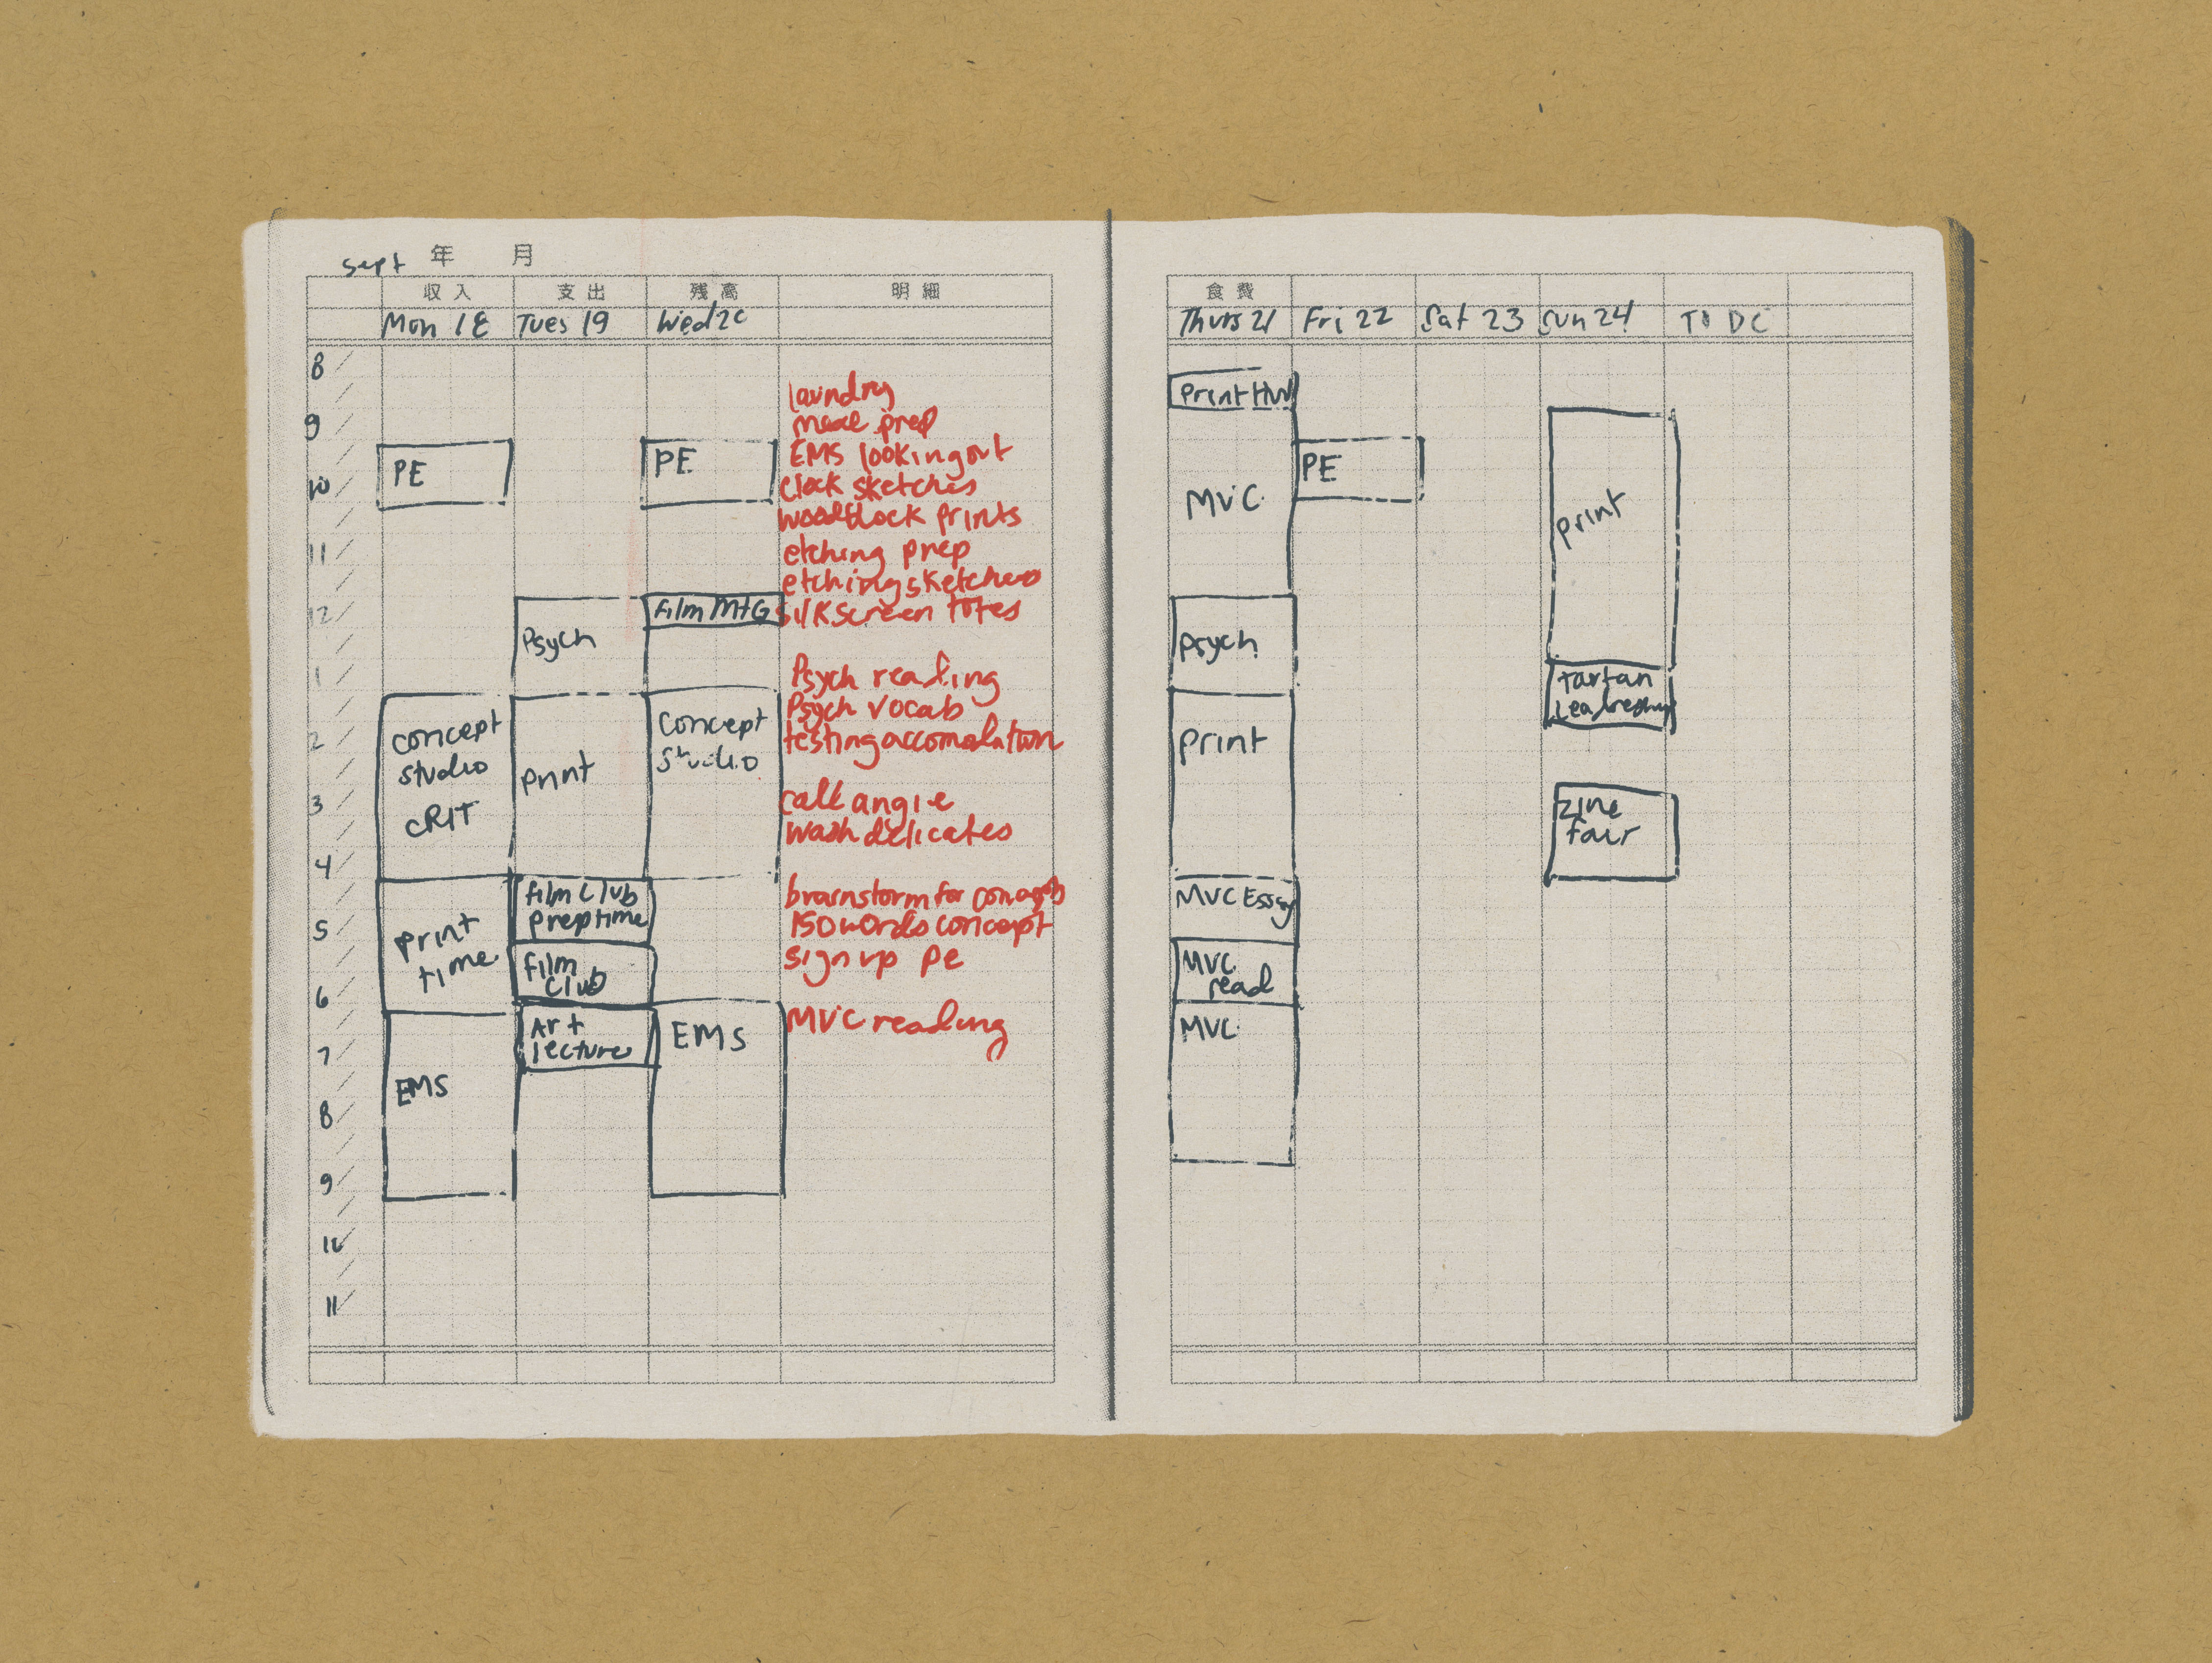 sept 年 月
収入 支出 残高 明細
Mon 18 Tues 19 Wed 20
8
9
10
11
12
1
2
3
4
5
6
7
8
9
10
11
PE
concept
studio
CRIT
print
time
EMS
Psych
print
film club
prep time
film
club
Art
lecture
PE
film MtG
concept
studio
EMS
laundry
meal prep
EMS looking out
clock sketches
woodblock prints
etching prep
etching sketches
silkscreen totes
Psych reading
Psych vocab
testing accomodation
call angie
wash delicates
brainstorm for
150 words concept
sign up PE
MVC reading
食費
Thurs 21 Fri 22 Sat 23 Sun 24 TO DO
print HW
MVC
psych
print
MVC Essay
MVC
read
MVC
PE
print
tartan
Leadership
zine
fair